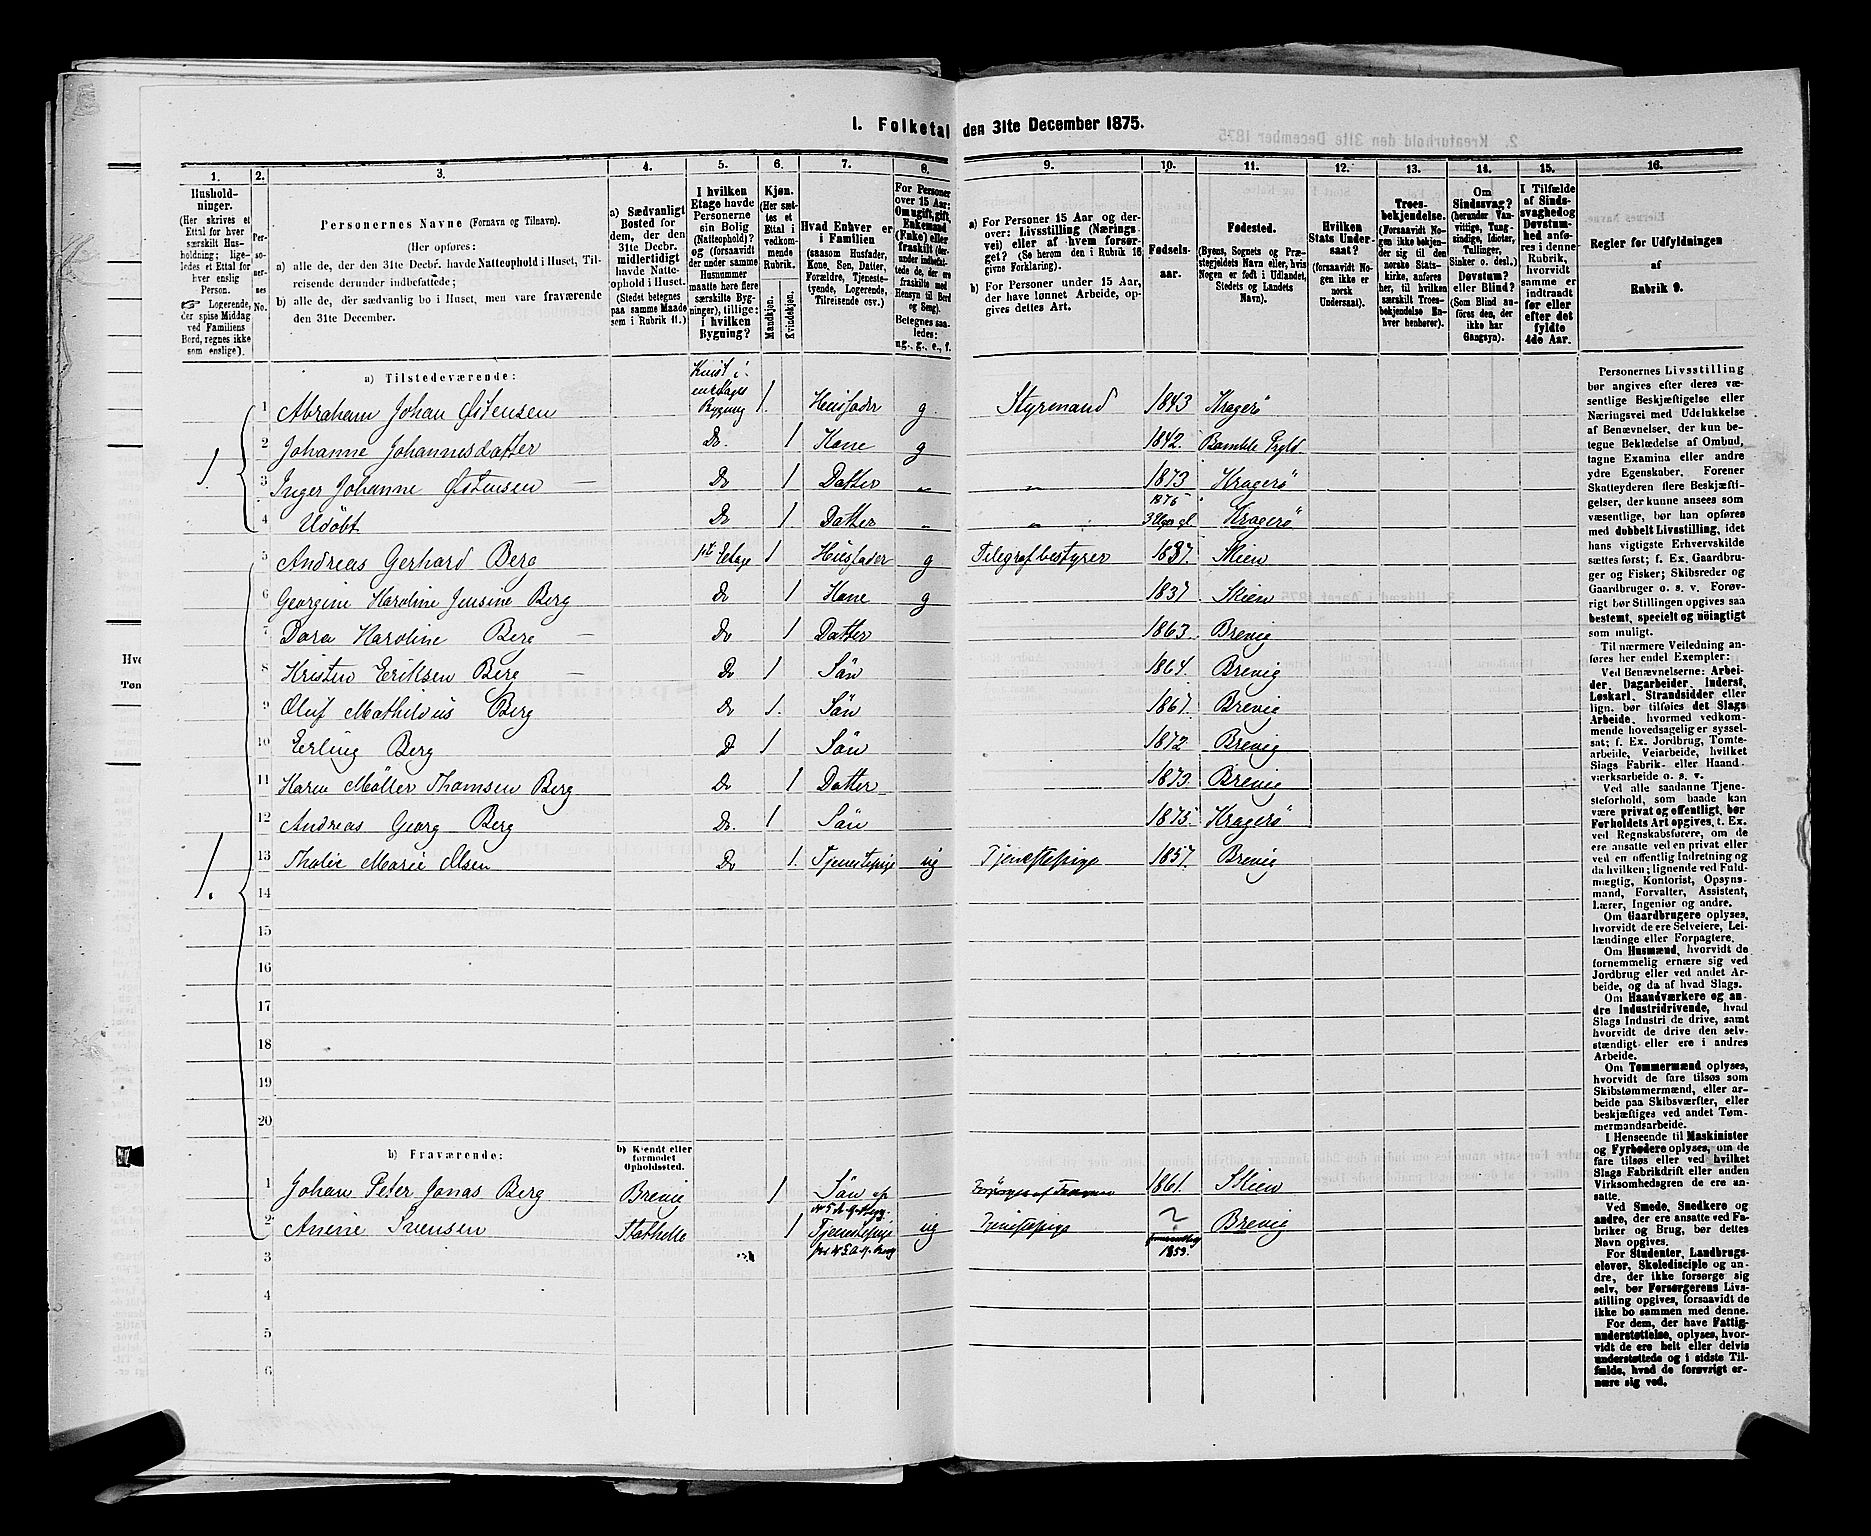 1. Folketal den 31te December 1875.
1. 2. 3. 4. 5. 6. 7. 8. 9. 10. 11. 12. 13. 14. 15. 16.
Hushold-
ninger.
(Her skrives et
Ettal for hver
særskilt Hus-
holdning; lige-
ledes et Ettal for
hver enslig
Person.
☞ Logerende,
der spise Middag
ved Familiens
Bord, regnes ikke
som enslige).
Per-
so-
ner-
nes
No.
Personernes Navne (Fornavn og Tilnavn).
(Her opføres:
a) alle de, der den 31te Decbr. havde Natteophold i Huset, Til-
reisende derunder indbefattede;
b) alle de, der sædvanlig bo i Huset, men vare fraværende
den 31te December.
a) Sædvanligt
Bosted for
dem, der den
31te Decbr.
midlertidigt
havde Natte-
ophold i Huset.
(Stedet betegnes
paa samme Maade
som i Rubrik 11.)
I hvilken
Etage havde
Personerne
sin Bolig
(Natteophold)?
og (forsaavidt
der under samme
Husnummer
maatte høre flere
særskilte Byg-
ninger), tillige:
i hvilken
Bygning?
Kjøn.
(Her sæt-
tes et
Ettal i
vedkom-
mende
Rubrik.
Mandkjøn.
Kvindekjøn.
Hvad Enhver er
i Familien
(saasom Husfader,
Kone, Søn, Datter,
Forældre, Tjeneste-
tyende, Logerende,
Tilreisende osv.)
For Personer
over 15 Aar:
Om ugift, gift,
Enkemand
(Enke) eller
fraskilt
derunder indbefat-
tede de, der ere
fraskilte med
Hensyn til Bord
og Seng).
Betegnes saa-
ledes:
ug., g., e., f.
a) For Personer 15 Aar og der-
over: Livsstilling (Nærings-
vei) eller af hvem forsør-
get? (Se herom den i Rubrik 16
givne Forklaring).
b) For Personer under 15 Aar,
der have lønnet Arbeide, op-
gives dettes Art.
Fødsels-
aar.
Fødested.
(Byens, Sognets og Præ-
stegjeldets Navn eller, hvis
Nogen er født i Udlandet,
Stedets og Landets
Navn).
Hvilken
Stats Under-
saat?
(forsaavidt No-
gen ikke er
norsk
Undersaat).
Troes-
bekjendelse.
(Forsaavidt No-
gen ikke bekjen-
der sig til den
norske Stats-
kirke, anføres
her, til hvilken
særskilt Troes-
bekjendelse En-
hver henhører).
Om
Sindssvag?
(herunder Van-
vittige, Tung-
sindige, Idioter,
Tullinger,
Sinker o. desl.)
Døvstum?
eller Blind?
(Som Blind an-
føres den, der
ikke har
Gangsyn).
I Tilfælde
af Sinds-
svaghed og
Døvstum-
hed anfø-
res i denne
Rubrik,
hvorvidt
samme er
indtraadt
før eller
efter det
fyldte
4de Aar.
Regler for Udfyldningen
af
Rubrik 9.
a) Tilstedeværende:
1. 1 Abraham Johan Østensen Kvist i enetages Bygning 1 Husfader g Styrmand 1843 Kragerö
2 Johanne Johannesdatter Do. 1 Kone g 1842. Bamble Prgld.
3 Inger Johanne Østensen — Do 1 Datter „ „ 1873 Kragerö
4 Udöbt Do 1 Datter „ „ 1875 3 Uger gl. Kragerö
1. 5 Andreas Gerhard Berg 1ste Etage 1 Husfader g Telegrafbestyrer 1837. Skien
6 Georgine Karoline Jensine Berg Do 1 Kone g 1837 Skien
7 Dora Karoline Berg — Do 1 Datter 1863. Brevig
8 Kristen Eriksen Berg — Do 1 Sön 1864. Brevig
9 Oluf Mathildius Berg Do 1. Sön 1867. Brevig
10 Erling Berg D 1 Sön 1872 Brevig
11 Karen Möller Thomsen Berg Do 1 Datter 1873. Brevig
12 Andreas Georg Berg Do. 1 Sön 1875. Kragerö
13 Thalie Marie Olsen Do 1. Tjenestepige ug Tjenestepige 1857. Brevig
14
15
16
17
18
19
20
b) Fraværende: b) Kjendt eller
formodet
Opholdssted.
1 Johan Peter Jonas Berg Brevig 1 Sön af No 5 A. G. Berg. 1861. Skien
2 Anene Svensen Stathelle 1 Tjenestepige for No 5 A. G. Berg ug Tjenestepige ? 1853. Brevig
3
4
5
6
Personernes Livsstilling
bør angives efter deres væ-
sentlige Beskjæftigelse eller
Næringsvei med Udelukkelse
af Benævnelser, der kun be-
tegne Beklædelse af Ombud,
tagne Examina eller andre
ydre Egenskaber. Forener
Skatteyderen flere Beskjæfti-
gelser, der kunne ansees som
væsentlige, bør han opføres
med dobbelt Livsstilling, idet
hans vigtigste Erhvervskilde
sættes først; f. Ex. Gaardbru-
ger og Fisker; Skibsreder og
Gaardbruger o. s. v. Forøv-
rigt bør Stillingen opgives saa
bestemt, specielt og nöiagtigt
som muligt.
Til nærmere Veiledning an-
føres her endel Exempler:
Ved Benævnelserne: Arbei-
der, Dagarbeider, Inderst,
Løskarl, Strandsidder eller
lign. bør tilføies det Slags
Arbeide, hvormed vedkom-
mende hovedsagelig er syssel-
sat; f. Ex. Jordbrug, Tomte-
arbeide, Veiarbeide, hvilket
Slags Fabrik- eller Haand-
værksarbeide o. s. v.
Ved alle saadanne Tjene-
steforhold, som baade kan
være privat og offentligt, bør
Forholdets Art opgives, t. Ex.
ved Regnskabsførere, om de
ere ansatte ved en privat eller
ved en offentlig Indretning og
da hvilken; lignende ved Fuld-
mægtig, Kontorist, Opsyns-
mand, Forvalter, Assistent,
Lærer, Ingeniør og andre.
Om Gaardbrugere oplyses,
hvorvidt de ere Selveiere, Lei-
lændinge eller Forpagtere.
Om Husmænd, hvorvidt de
fornemmelig ernære sig ved
Jordbrug eller ved andet Ar-
beide, og da af hvad Slags.
Om Haandværkere og an-
dre Industridrivende, hvad
Slags Industri de drive, samt
hvorvidt de drive den selv-
stændigt eller ere i andres
Arbeide.
Om Tømmermænd oplyses,
hvorvidt de fare tilsøs som
Skibstømmermænd, eller ar-
beide paa Skibsværfter, eller
beskjæftiges ved andet Tøm-
mermandsarbeide.
I Henseende til Maskinister
og Fyrbødere oplyses, om de
fare tilsøs eller ved hvilket
Slags Fabrikdrift eller anden
Virksomhedsgren de ere an-
satte.
Ved Smede, Snedkere og
andre, der ere ansatte ved Fa-
briker og Brug, bør dettes
Navn opgives.
For Studenter, Landbrugs-
elever, Skoledisciple og an-
dre, der ikke forsørge sig
selv, bør Forsørgerens Livs-
stilling opgives, forsaavidt de
ikke bo sammen med denne.
For dem, der have Fattig-
understøttelse, oplyses, hvor-
vidt de ere helt eller delvis
understøttede og i sidste Til-
fælde, hvad de forøvrigt er-
nære sig ved.